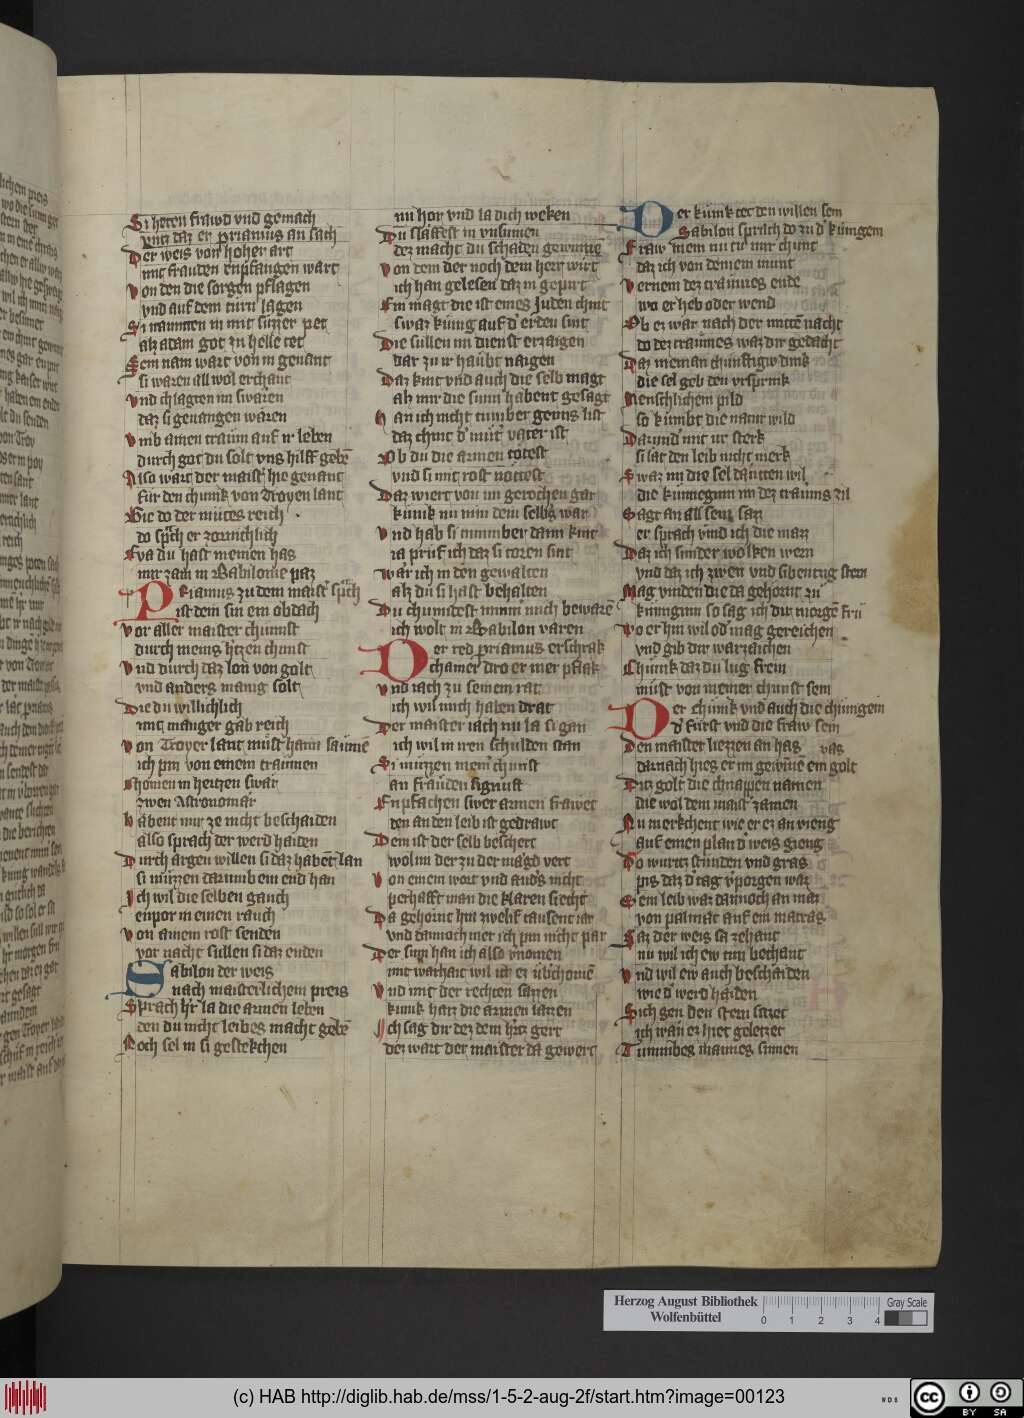 Si heten frawd vnd gemach
vntz daz er priamus an sach
Der weis von hoher art
mit frauden enpfangen wart
von den die sorgen pflagen
vnd auf dem turn lagen
Si naimten in mit suzzer pet
alz adam got zu helle tet
Sein nam wart von in genant
si waren all wol erchant
vnd chlagten im swaren
daz si geuangen waren
vmb ainen traum auf ir leben
durch got du solt vns hilff gebē
Also wart der maist' hie genant
fur den chunk von Troyen lant
Sie do der mutes reich
do sprch er zornichlich
Eya du hast meinen has
mir zam in Babilonie paz
Priamus zu dem maist' sprch
ist dein sin ein obdach
vor aller maister chunst
durch meins h'tzen chunst
vnd durch daz lon von golt
vnd anders manig solt
Die du willichlich
mit manger gab reich
von Troyer lant must haim saumē
ich pin von einem traumen
chomen in hertzen swar
zwen Astronomar
habent mir ze nicht beschaiden
also sprach der werd haiden
Durch argen willen si daz habēt lan
si muzzen darumb ein end han
Ich wil die selben gauch
enpor in einen rauch
von ainem rost senden
vor nacht sullen si daz enden
Sabilon der weis
nach maisterlichem preis
Sprach h'r la die armen leben
den du nicht leibes macht gebē
Noch sel in si gestekchen
nu hor vnd la dich weken
Du slaffest in vnsinnen
dez macht du schaden gewinnē
von dem der noch dem herr wirt
ich han gelesen daz in gepirt
Ein magt die ist eines Juden chint
swaz kunig auf d' erden sint
Die sullen im dienst erzaigen
dar zu ir haubt naigen
Daz kint vnd auch die selb magt
ah mir die sinn habent gesagt
han ich nicht tumber genns list
daz chint d' mut' vater ist
Ob du die armen totest
vnd si mit rost nottest
Daz wiert von im gerochen gar
kunik nu nim dein selb's war
vnd hab si nimmber dann kint
ia pruf ich daz si toren sint
war ich in den gewalten
alz du si hast behalten
Du chumdest nimm' mich bewarē
ich wolt in Babilon varen
Der red priamus erschrak
chainer dro er mer pflak
vnd iach zu seinem rat
ich wil mich haben drat
Der maister iach nu la si gan
ich wil in iren schulden stan
Si muzzen mein' chunst
an frauden signust
Enpfachen swer armen frawet
den an den leib ist gedrawt
Dem ist der selb beschert
wol im der zu der magd vert
von einem wort vnd and's nicht
perhafft man die klaren siecht
Da gehoint hin zwelf tausent iar
vnd dannoch mer ich pin nicht par
Der sinn han ich also v'nomen
mit warhait wil ich ez vb'chomē
vnd mit der rechten sagen
kunik haiz die armen laien
Ich sag dir dez dein h'tz gert
dez wart der maister da gewert
Der kunik tet den willen sein
Sabilon sprach do zu d' kunigein
Fraw mein nu tu mir chunt
daz ich von deinem munt
vernem dez traumes ende
wo er heb oder wend
Ob er war nach der mittē nacht
do dez traumes waz dir gedacht
Daz mein an chunftigw dink
die sel geb den vrsprink
Menschlichem pild
so kumbt die natur wild
Darund' mit ir sterk
si lat den leib nicht merk
Swaz nu die sel dautten wil
die kunneginn im dez traums zil
Sagt an all seuz saz
er sprach vnnd ich die maz
Daz ich sunder wolken wein
vnd daz ich zwen vnd sibentzig stern
Mag vinden die da gehornt zu
kuniginn so sag ich dir morgē fru
wo er hin wil od' mag gereichen
vnd gib dir warzaichen
Chunk daz du lug frein
must von meiner chunst sein
Der chunk vnd auch die chunigein
d' furst vnd die fraw sein
Den maister liezzen an has
darnach hies er im gewinē ein golt vas
Ditz golt die chnappen namen
die wol dem maist' zamen
Nu merkchent wie er ez an vieng
auf einen plan d' weis gieng
Do wurtz stunden vnd gras
pis daz d' tag v'porgen waz
Sein leib waz dannoch an mat
von palmat auf ein matras
Saz der weis sa zehant
nu wil ich ew tun bechant
vnd wil ew auch beschaiden
wie d' werd haiden
Sich gen den stern satzt
ich wan ez hiet geletzet
Tummbes mannes sinnen
Herzog August Bibliothek
Wolfenbüttel
0 1 2 3 4
Gray Scale
(c) HAB http://diglib.hab.de/mss/1-5-2-aug-2f/start.htm?image=00123
WDB
cc
BY SA